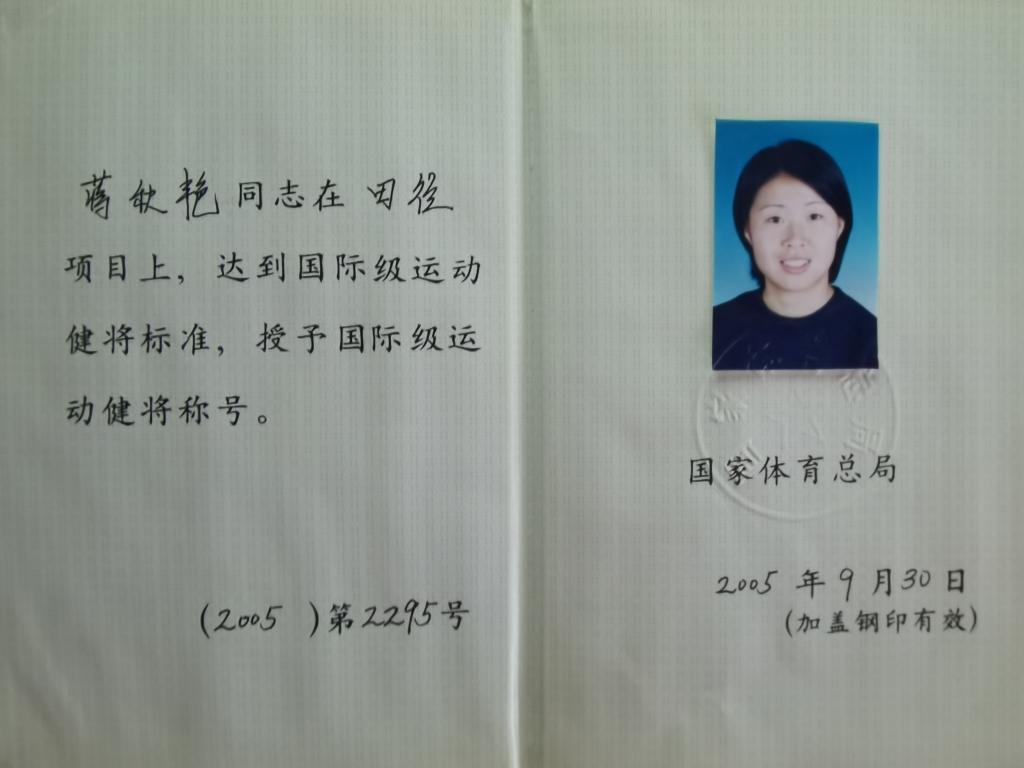 蒋秋艳同志在田径
项目上，达到国际级运动
健将标准，授予国际级运
动健将称号。
(2005 )第2295号
国家体育总局
2005年9月30日
(加盖钢印有效)